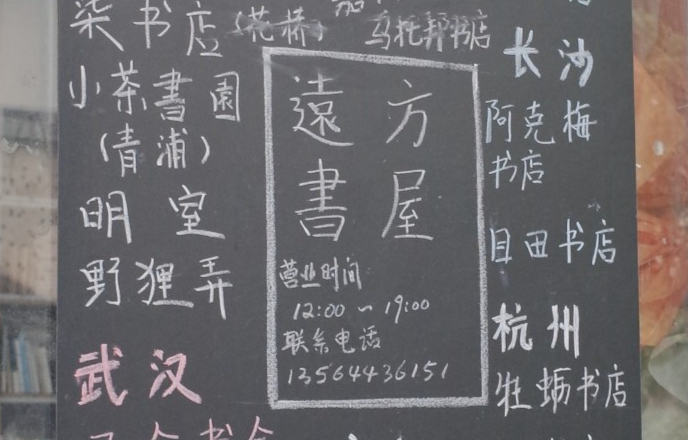 柒书店
(花桥)
乌托邦书店
小茶書園
(青浦)
明室
野狸弄
武汉
遠方
書屋
营业时间
12:00 ~ 19:00
联系电话
13564436151
长沙
阿克梅
书店
目田书店
杭州
牡蛎书店